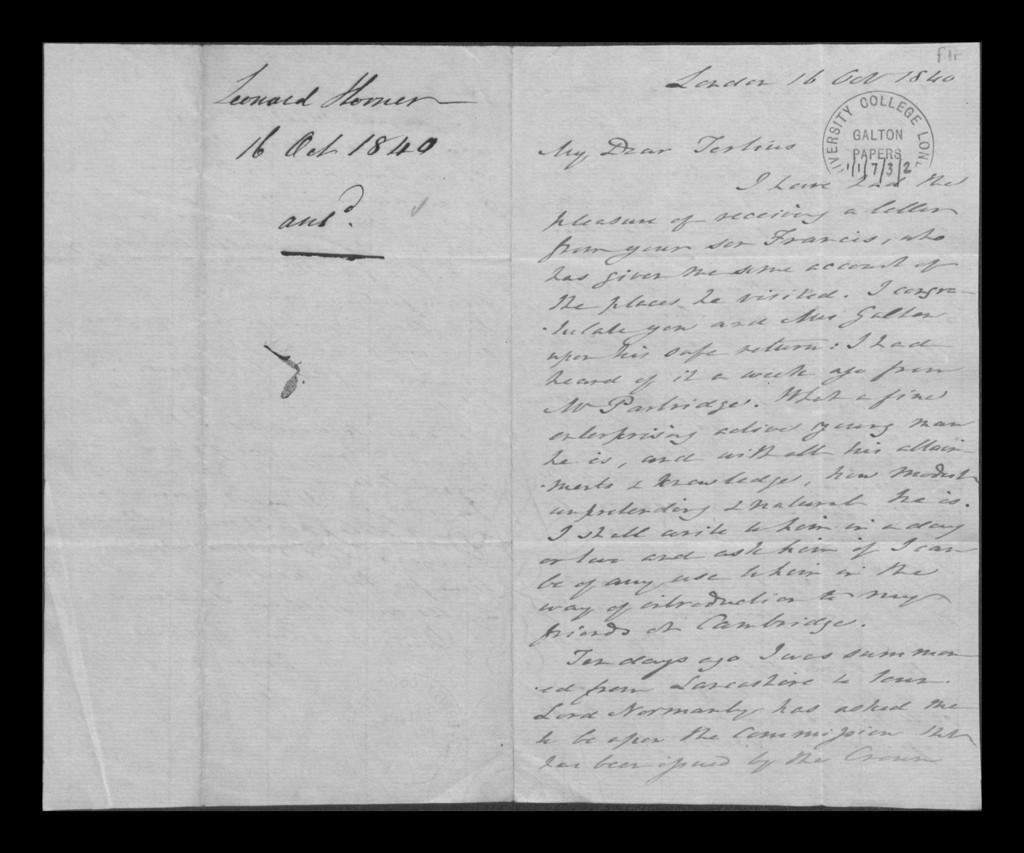 Leonard Horner
16 Oct 1840
ansd.
f1r
London 16 Oct 1840
UNIVERSITY COLLEGE LON
GALTON
PAPERS
1/1/7/3/2
My Dear Tertius
I have had the
pleasure of receiving a letter
from your son Francis, who
has given me some account of
the places he visited. I congra-
-tulate you and Mrs Galton
upon his safe return: I had
heard of it a week ago from
Mr Partridge. What a fine
enterprising active young man
he is, and with all his attain-
-ments & knowledge, how modest
unpretending & natural he is.
I shall write to him in a day
or two and ask him if I can
be of any use to him in the
way of introduction to my
friends at Cambridge.
Ten days ago I was summon
-ed from Lancashire to town.
Lord Normanby has asked me
to be upon the Commission that
has been issued by the Crown